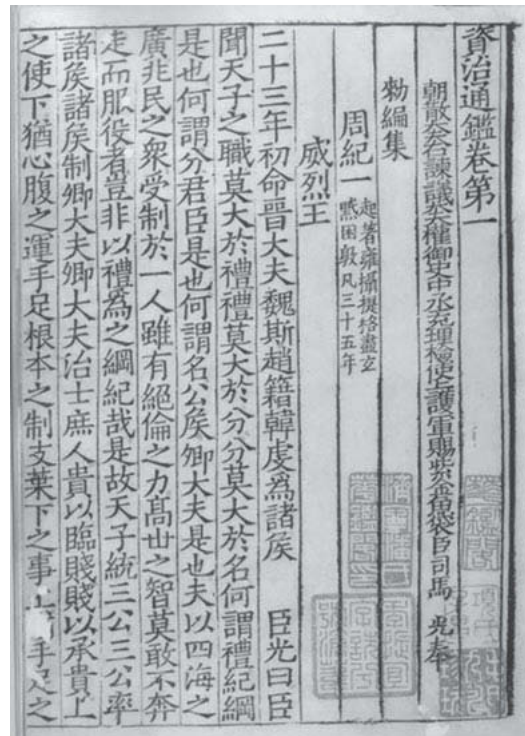 資治通鑑卷第一
朝散大夫右諫議大夫權御史中丞充理檢使上護軍賜紫金魚袋臣司馬 光奉
勑編集
周紀一
起著雍攝提格盡玄
黓困敦凡三十五年
威烈王
二十三年初命晉大夫魏斯趙籍韓虔爲諸矦 臣光曰臣
聞天子之職莫大於禮禮莫大於分分莫大於名何謂禮紀綱
是也何謂分君臣是也何謂名公矦卿大夫是也夫以四海之
廣兆民之衆受制於一人雖有絕倫之力高世之智莫敢不奔
走而服役者豈非以禮爲之綱紀哉是故天子統三公三公率
諸矦諸矦制卿大夫卿大夫治士庶人貴以臨賤賤以承貴上
之使下猶心腹之運手足根本之制支葉下之事上猶手足之